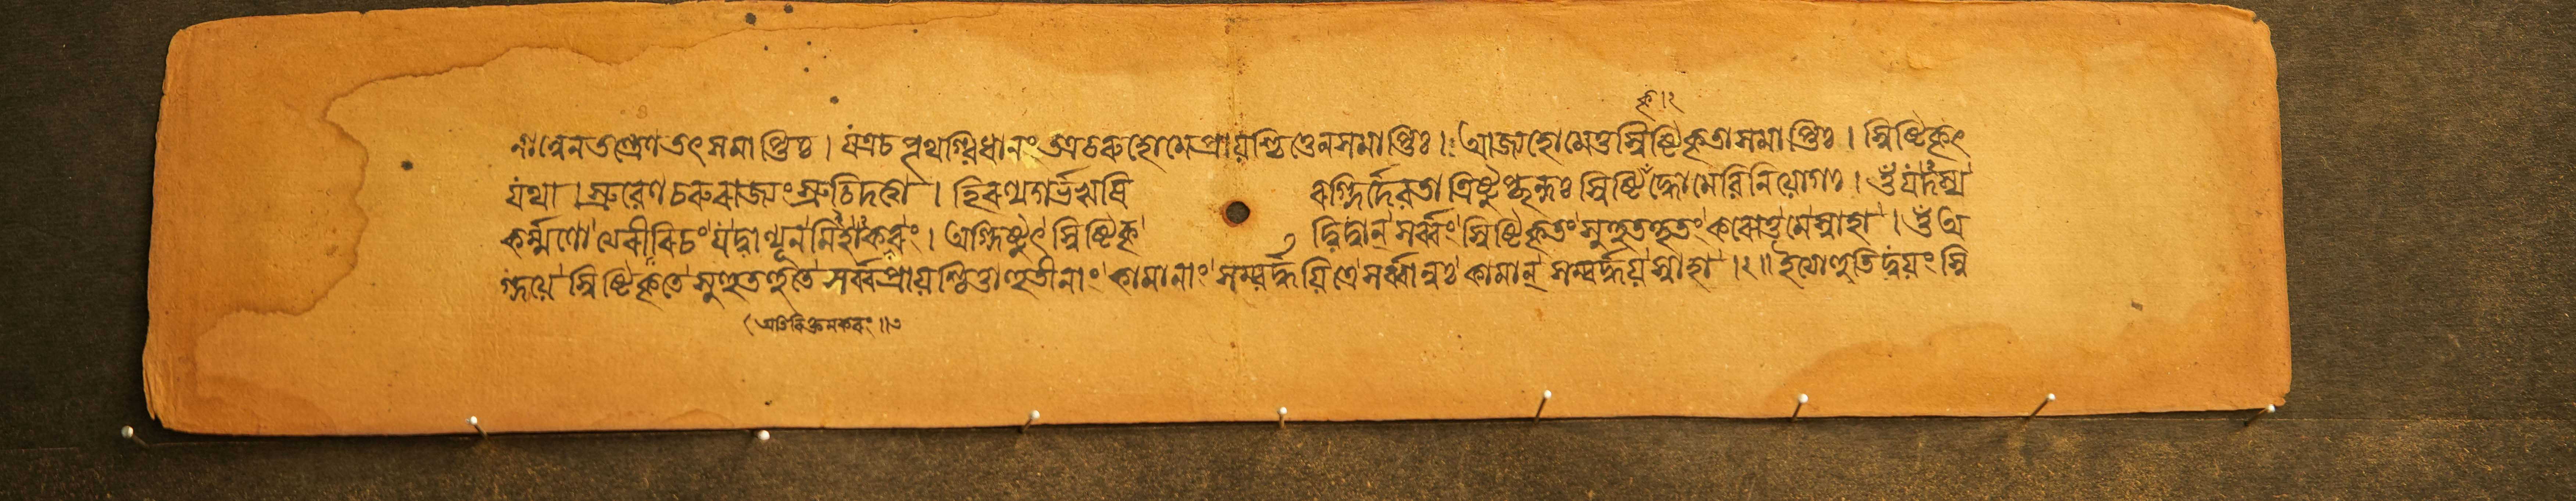 কৃ।২
নঃ স্বেনতন্ত্রেণতৎসমাপ্তিঃ। যত্রচপৃথগ্বিধানং তত্রচরুহোমেপ্রায়শ্চিত্তেনসমাপ্তিঃ। আজ্যহোমেতুস্বিষ্টিকৃতাসমাপ্তিঃ। স্বিষ্টিকৃৎ
যথা। স্রুবেণচরুবাজ্যং স্রুচিদত্ত্বা। হিরণ্যগর্ভঋষি রগ্নির্দেবতা ত্রিষ্টুপ্ছন্দঃ স্বিষ্টিহোমেবিনিয়োগঃ। ওঁ যদস্য
কর্ম্মণো ত্যরীরিচং যদ্বান্যূনমিহাকরং। অগ্নিষ্টৎ স্বিষ্টিকৃ দ্বিদ্বান সর্ব্বং স্বিষ্টিকৃতং সুহুতহুতং করোতুমেস্বাহা। ওঁ অ
গ্নয়ে স্বিষ্টিকৃতে সুহুতহুতে সর্ব্বপ্রায়শ্চিত্তাহুতীনাং কামানাং সমর্দ্ধয়িত্রে সর্ব্বান্নঃ কামান্ সমর্দ্ধয় স্বাহা।২॥ ইত্যেহুতিদ্বয়ং স্বি